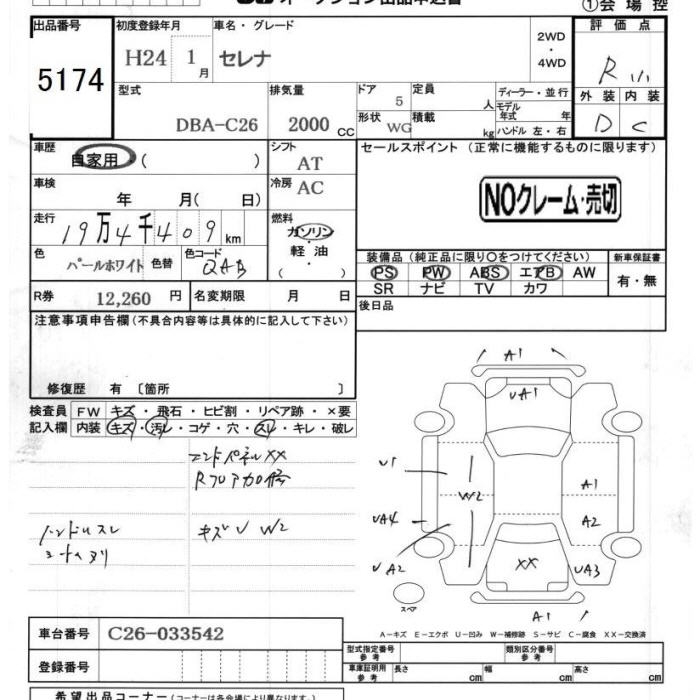 オークション出品申込書
①会場控
出品番号
5174
初度登録年月
車名・グレード
H24 1月 セレナ
2WD
・
4WD
評価点
R
型式
DBA-C26
排気量
2000 CC
ドア 5
定員 人
形状 WG
積載 kg
ディーラー・並行
モデル年式 年
ハンドル 左・右
外装 内装
D C
車歴
自家用 ( )
シフト
AT
セールスポイント (正常に機能するものに限ります)
車検
年 月( 日)
冷房
AC
NOクレーム・売切
走行
19万4千409 km
燃料
ガソリン
・
軽油
( ・ )
色
パールホワイト
色替
色コード
QAB
装備品 (純正品に限り〇をつけてください)
新車保証書
PS PW ABS エアB AW
SR ナビ TV カワ
有・無
R券 12,260 円
名変期限 月 日
後日品
注意事項申告欄 (不具合内容等は具体的に記入して下さい)
修復歴 有 〔箇所 〕
検査員 FW キズ・飛石・ヒビ割・リペア跡・×要
記入欄 内装 キズ・汚レ・コゲ・穴・スレ・キレ・破レ
エンドパネルXX
Rフロア加修
ハンドルスレ
キズU W2
A1
UA1
U1
W2
A1
UA4
A2
UA2
XX
UA3
A1
スペア
A-キズ E-エクボ U-凹み W-補修跡 S-サビ C-腐食 XX-交換済
車台番号 C26-033542
登録番号
型式指定番号
参考
類別区分番号
参考
車庫証明用
参考
長さ cm
幅 cm
高さ cm
希望出品コーナー (コーナーは各会場により異なります)